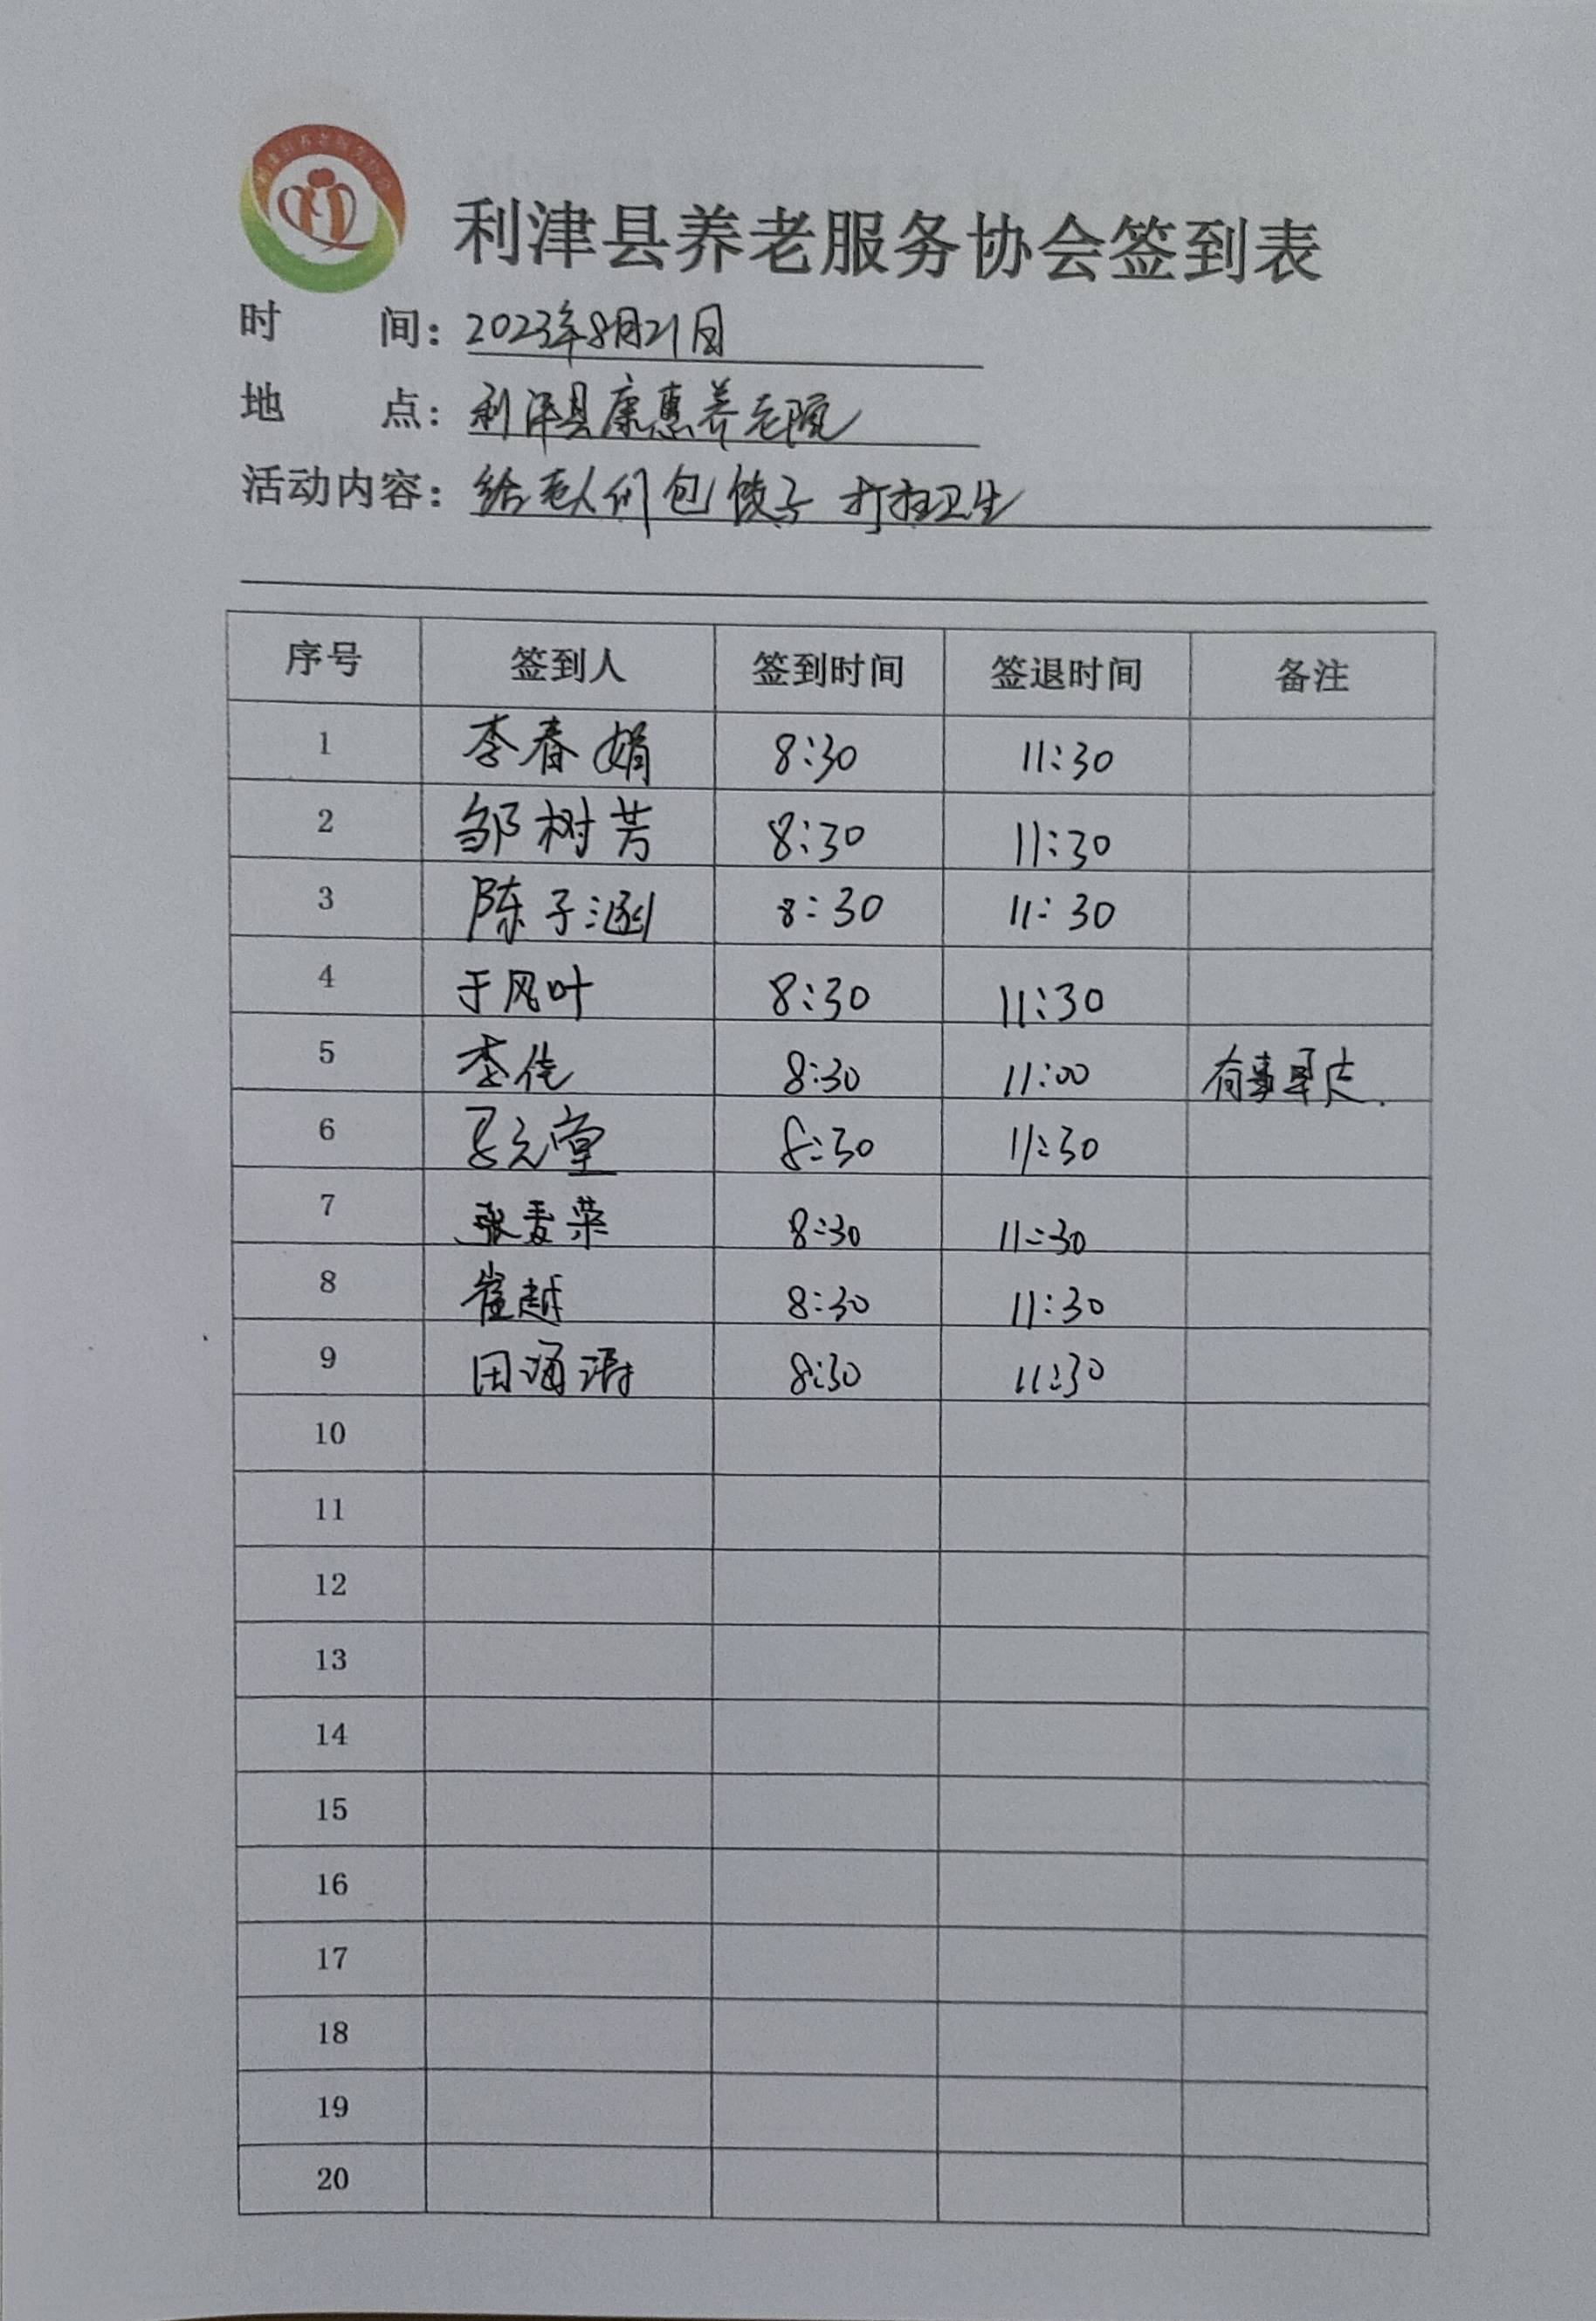 利津县养老服务协会签到表
时 间：2023年8月21日
地 点：利津县康惠养老院
活动内容：给老人们包饺子 打扫卫生
序号 签到人 签到时间 签退时间 备注
1 李春娟 8:30 11:30
2 邹树芳 8:30 11:30
3 陈子涵 8:30 11:30
4 于风叶 8:30 11:30
5 李佳 8:30 11:00 有事早走.
6 8:30 11:30
7 张麦荣 8:30 11:30
8 崔越 8:30 11:30
9 田涵 8:30 11:30
10
11
12
13
14
15
16
17
18
19
20